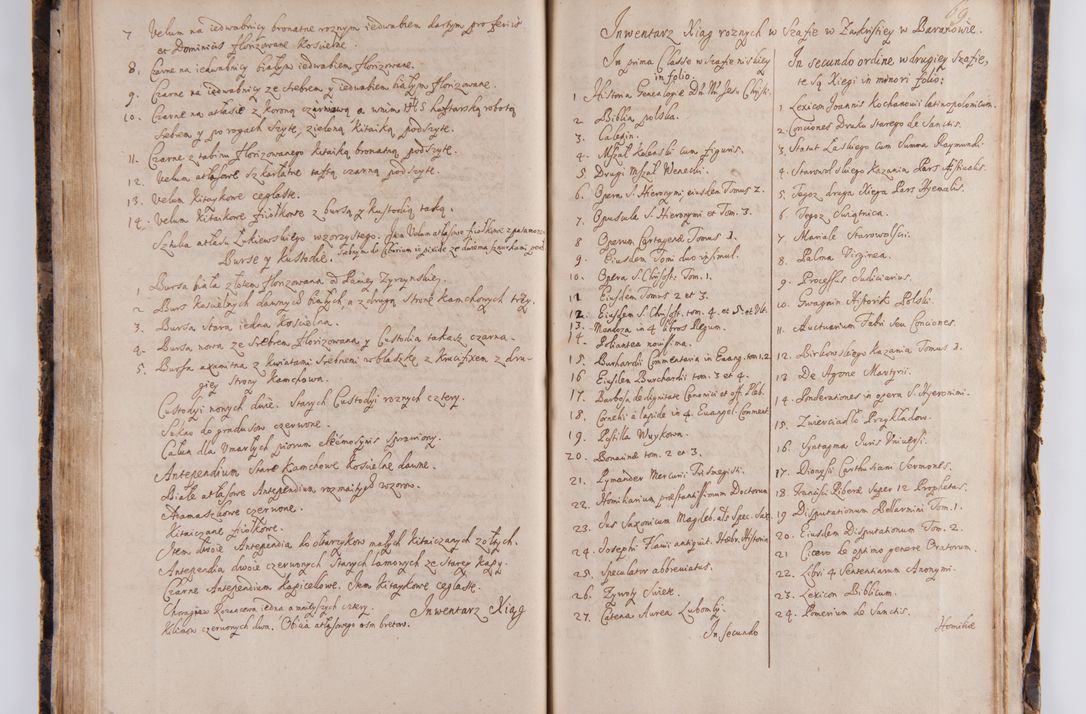 7. Velum na iedwabnicy bronatne roznym iedwabiem dartym pro feriis
et Dominicis florizowane Koscielne.
8. Czarne na iedwabnicy białym iedwabiem florizowane.
9. Czarne na iedwabnicy ze srebrem y iedwabiem białym florizowane.
10. Czarne na atłasie z Koroną czarwoną a wnim IHS haftarską robotą
srebrem y po rogach szyte, zieloną Kitaiką podszyte.
11. Czarne z tabinu florizowanego Kitaiką bronatną podszyte.
12. Velum atłasowe szkarłatne taftą czarną podszyte.
13. Velum Kitaykowe ceglaste.
14. Velum Kitaikowe fiiołkowe z bursą y Kustodią taką.
Sztuka atłasu Łokiewskiego wzorzystego.
Burse y Kustodie.
1. Bursa biała złotem florizowana od Paniey Zyrzynskiey.
2. Burs Koscielnych dawnych białych a z drugą stronę Kamchowych trzy.
3. Bursa stara iedna Koscielna.
4. Bursa nowa ze srebrem florizowana y Custodia takasz czarna.
5. Bursa axamitna z Kwiatami srebrnemi w blaszkę z Krucifixem z dru-
giey strony Kamchowa.
Custodyi nowych dwie. Starych Custodyi roznych cztery.
Sukno do gradusow czerwone.
Całun dla Vmarłych piorum eleemosynis sprawiony.
Antependium stare Kamchowe Koscielne dawne.
Białe atłasowe Antependium rozmaitych wzorow.
Adamaszkowe czerwone.
Kitaiczane fiiołkowe.
Item dwoie Antependia do ołtarzykow małych Kitaiczanych zołtych.
Antependia dwoie czerwonych starych lamowych ze starey Kapy.
Czarne Antependium Kapicellowe. Item Kitaykowe ceglaste.
Kilimow czerwonych dwa. Obicia atłasowego osm bretow.
Inwentarz Xiąg
69
Inwentarz Xiag roznych w Szafie w Zakrystiey w Baranowie.
In prima Classe w szafie niskiey
in folio.
1 Historia Genealogiæ Dni Nri Jesu Christi.
2 Biblia polska.
3. Calepin.
4. Mszał Kalenski cum figuris.
5 Drugi Mszał Wenecki.
6. Opera S. Hieronymi eiusdem Tomus 2.
7. Opuscula S. Hieronymi et Tom. 3.
8 Opera Cartagenæ Tomus 1.
9. Eiusdem Tomi duo in simul.
10. Opera S. Chrysost. Tom. 1.
11 Eiusdem Tomus 2 et 3.
12. Eiusdem S. Chrysost. tom. 4. et 5. et Vlt.
13. Mendoza in 4 libros Regum.
14. Poliantea novissima.
15. Burchardi Commentaria in Euang. tom. 1. 2.
16 Eiusdem Burchardi tom. 3 et 4.
17. Barbosa de dignitate Canonici et off. Pleb.
18. Corneli à lapide in 4. Euangel. Comment.
19. Postilla Wuykowa.
20. Bonacinæ tom. 2 et 3.
21. Pymander Mercurii Trismegisti.
22. Homiliarium præstantissimorum Doctorum
23. Jus Saxonicum Magdeb. als Spec. Sax.
24. Josephi Flavii antiquit. Hebr. Historia
25. Speculator abbreviatus.
26. Zywoty Swięte.
27. Catena Aurea Lubomly.
In secundo
In secundo ordine w drugiey szafie,
te są Xiegi in minori folio.
1 Lexicon Joannis Kochanovii latinopolonicum.
2. Conciones Druku starego de Sanctis.
3. Statut Łaskiego cum Summa Raymundi.
4. Starowolskiego Kazania Pars Æstiualis.
5. Tegoz druga Xiega Pars Hyemalis.
6 Tegoz Swiątnica.
7. Mariale Starowolscii.
8. Palma Virginea.
9. Processus Iudiciarius.
10. Gwagnin Historik Polski.
11. Auctuarium Fabri seu Conciones.
12. Birkowskiego Kazania Tomus 1.
13. De Agone Martyrii.
14. Ponderationes in opera S. Hyeronimi.
15. Zwierciadło Przykładow.
16. Syntagma Iuris Vniuersi.
17. Dionysii Carthusiani Sermones.
18. Francisci Riberæ Super 12 Prophetas.
19 Disputationum Bellarmini Tom. 1.
20. Eiusdem Disputationum Tom. 2.
21 Cicero de optimo genere Oratorum.
22. Libri 4 Sententiarum Anonymi.
23. Lexicon Biblicum.
24. Pomerium de Sanctis.
Homiliæ